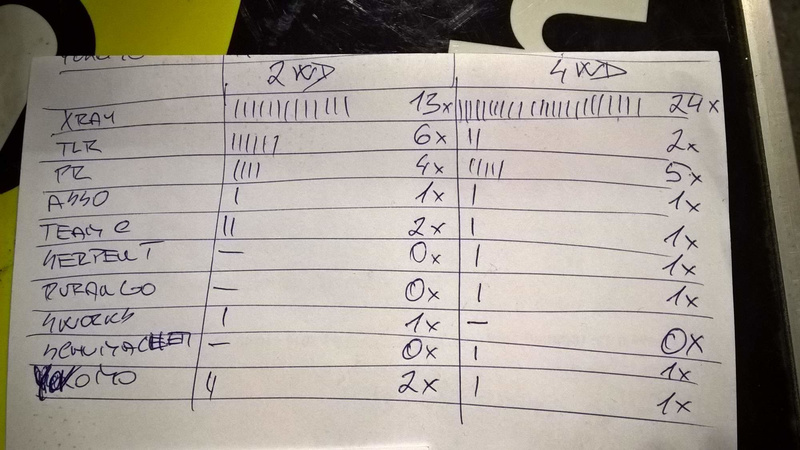 2WD 4WD
XRAY 13x 24x
TLR 6x 2x
PR 4x 5x
ASSO 1x 1x
TEAM C 2x 1x
SERPENT 0x 1x
DURANGO 0x 1x
SWORKS 1x 0x
SCHUMACHER 0x 1x
YOKOMO 2x 1x